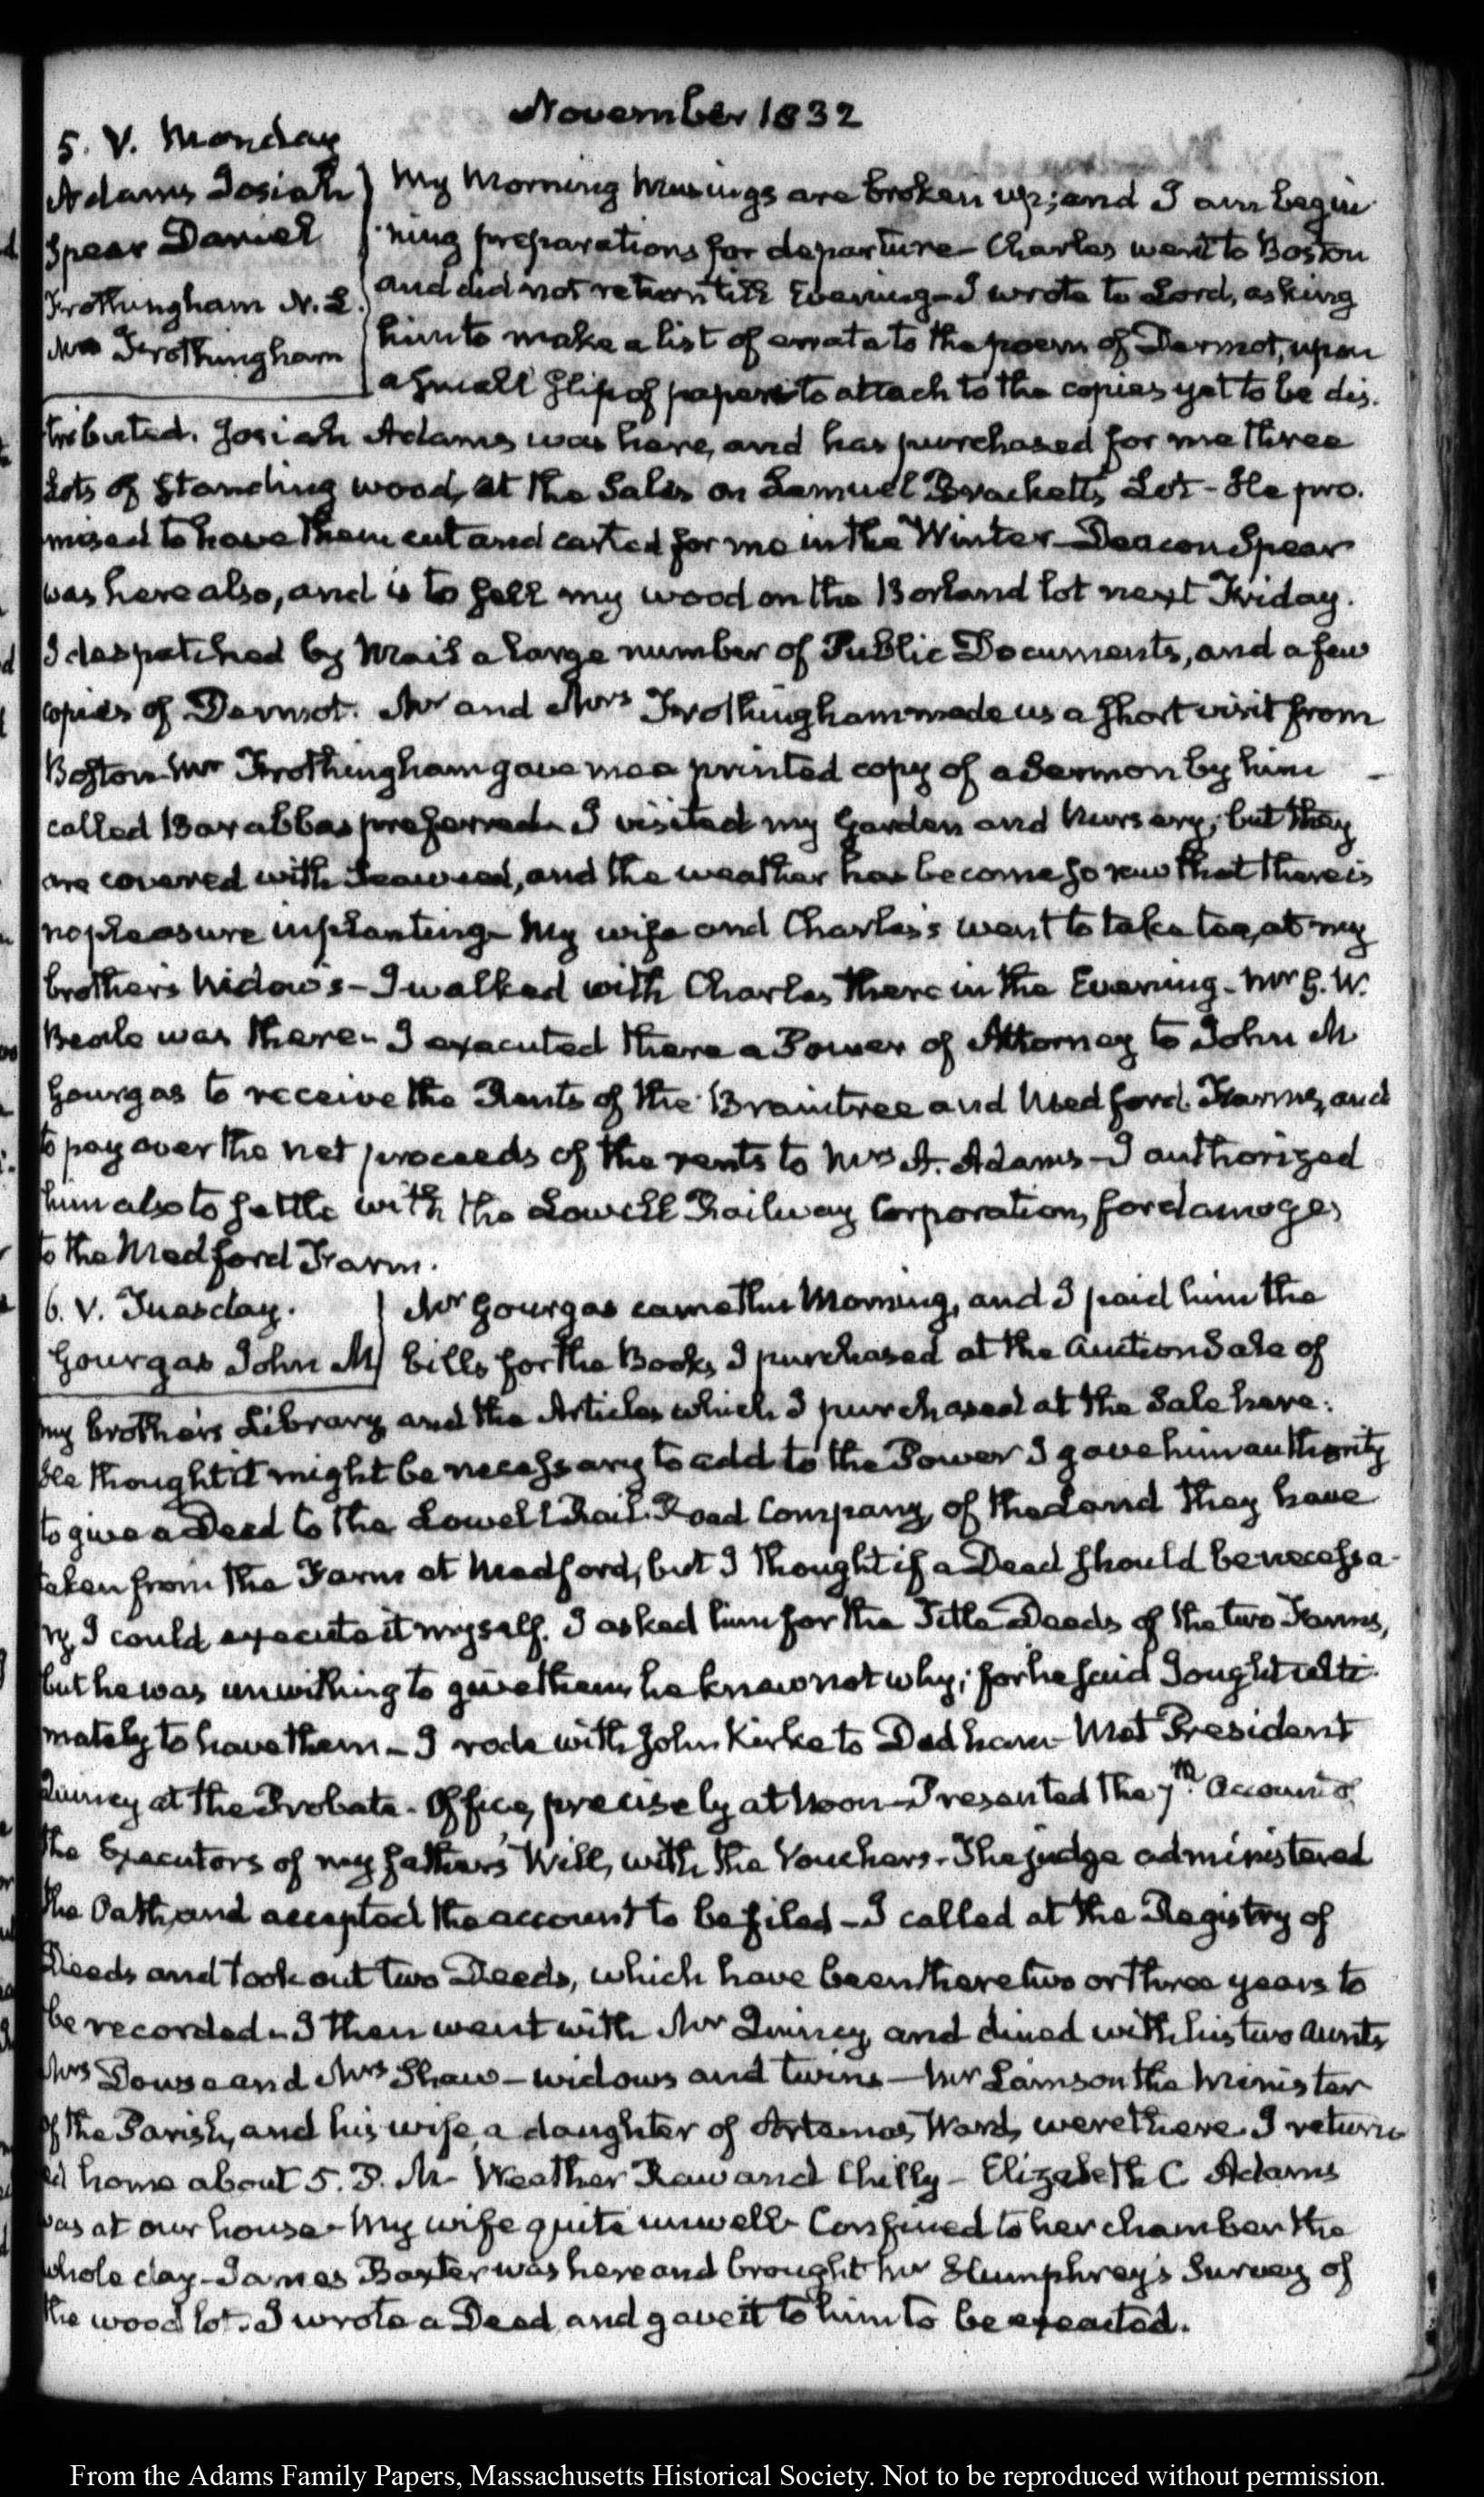 November 1832
5. V. Monday
Adams Josiah
Spear Daniel
Frothingham N. L.
Mrs Frothingham
My Morning Musings are broken up; and I am begin
ning preparations for departure- Charles went to Boston
and did not return till Evening- I wrote to Lord, asking
him to make a list of errata to the poem of Dermot, upon
a small slip of paper to attach to the copies yet to be dis.
tributed. Josiah Adams was here, and has purchased for me three
Lots of standing wood, at the Sales on Lemuel Brackett's Lot- He pro.
mised to have them cut and carted for me in the Winter- Deacon Spear
was here also, and is to sell my wood on the Borland lot next Friday.
I despatched by Mail a large number of Public Documents, and a few
copies of Dermot. Mr and Mrs Frothingham made us a short visit from
Boston- Mr Frothingham gave me a printed copy of a Sermon by him
called Barabbas preferred- I visited my Garden and Nursery; but they
are covered with Seaweed, and the weather has become so raw that there is
no pleasure in planting- My wife and Charles's went to take tea, at my
brother's Widow's- I walked with Charles there in the Evening- Mr G. W.
Beale was there- I executed there a Power of Attorney to John M
Gourgas to receive the Rents of the Braintree and Medford Farms, and
to pay over the net proceeds of the rents to Mrs A. Adams- I authorized
him also to settle with the Lowell Railway Corporation, for damages
to the Medford Farm.
6. V. Tuesday.
Gourgas John M
Mr Gourgas came this Morning, and I paid him the
bills for the Books, I purchased at the Auction Sale of
my brother's Library, and the Articles which I purchased at the Sale here.
He thought it might be necessary to add to the Power I gave him authority
to give a Deed to the Lowell Rail Road Company, of the Land they have
taken from the Farm at Medford, but I thought if a Deed should be necessa-
ry, I could execute it myself. I asked him for the Title Deeds of the two Farms,
but he was unwilling to give them, he knew not why; for he said I ought ulti-
mately to have them- I rode with John Kirke to Dedham- Met President
Quincy at the Probate-Office, precisely at Noon- Presented the 7th Account of
the Executors of my father's Will, with the Vouchers- The judge administered
the Oath, and accepted the account to be filed- I called at the Registry of
Deeds and took out two Deeds, which have been there two or three years to
be recorded- I then went with Mr Quincy, and dined with his two Aunts
Mrs Dowse and Mrs Shaw- widows and twins- Mr Lamson the Minister
of the Parish, and his wife, a daughter of Artemas Ward, were there. I return
ed home about 5. P. M- Weather Raw and Chilly- Elizabeth C Adams
was at our house- My wife quite unwell- Confined to her chamber the
whole day- James Baxter was here and brought Mr Humphrey's Survey of
the wood lot. I wrote a Deed, and gave it to him to be executed.
From the Adams Family Papers, Massachusetts Historical Society. Not to be reproduced without permission.